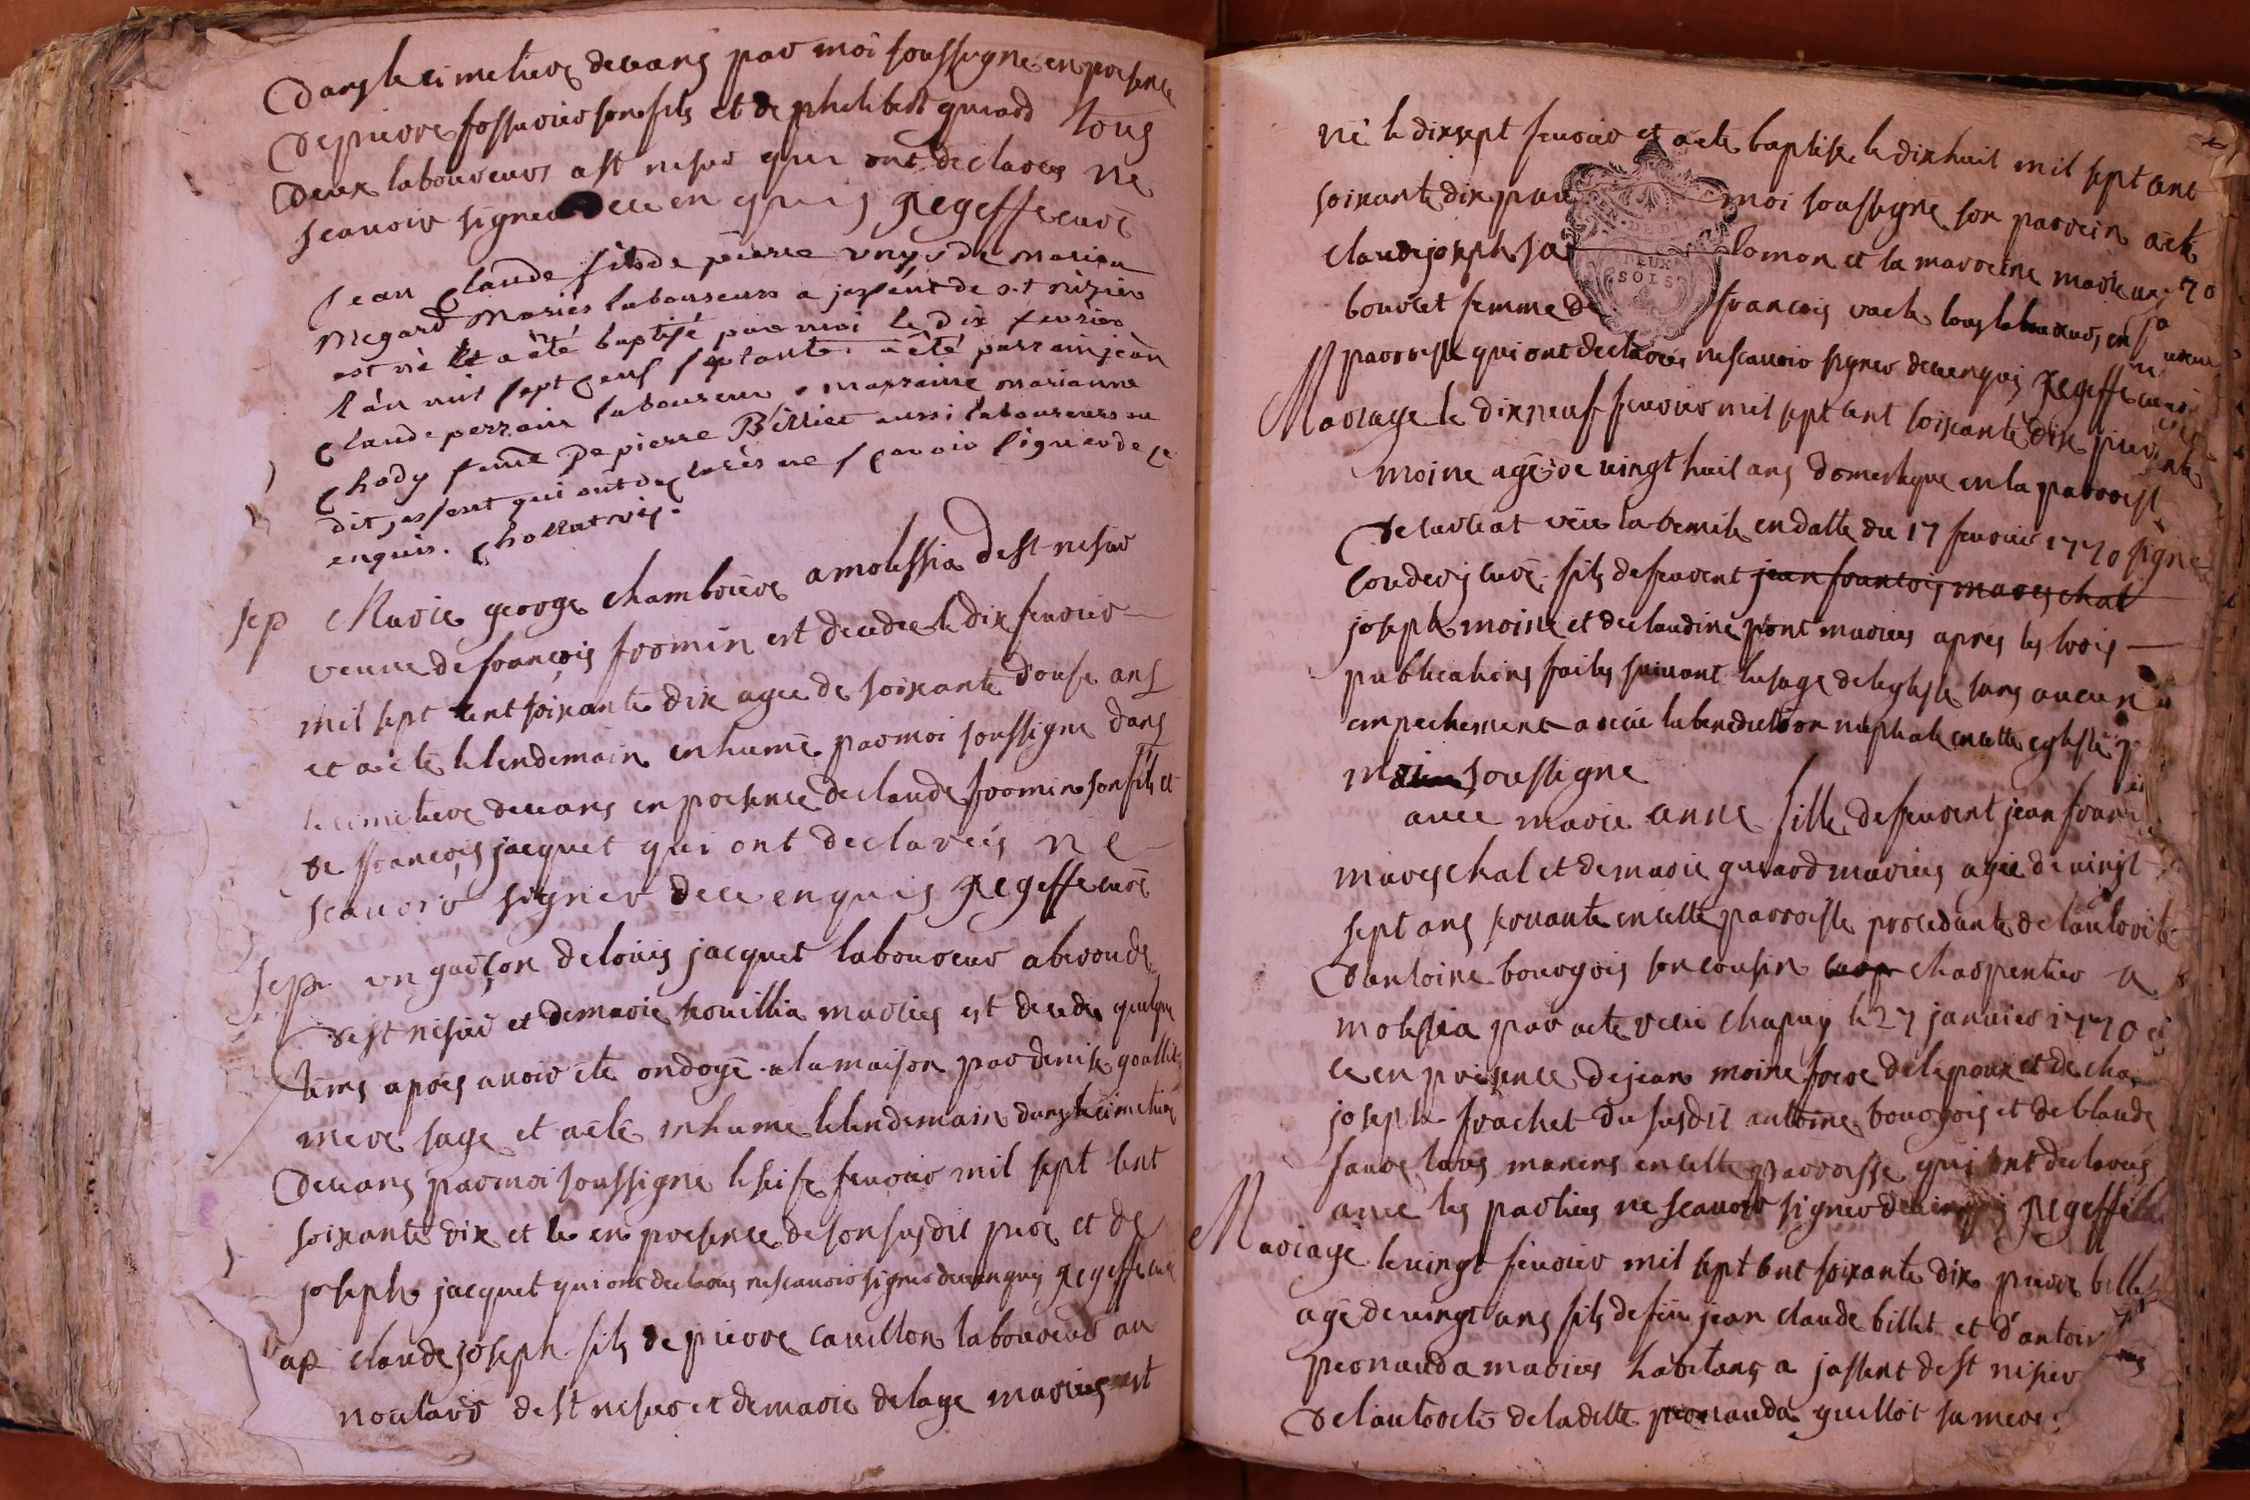 dans le cimetiere de ceans par moi soussigne en presence
de pierre fossurier son fils et de philibert guiard tous
deux laboureurs a st nisier qui ont declarés ne
scauoir signer de ce enquis regeffe curé
jean claude fils de pierre unys de marian
megard mariés laboureurs a jassent de s.t nizier
est né et a été baptisé par moi le dix fevrier
l'an mil sept cens septante. a été parrain jean
claude perrain laboureur marraine marianne
chody femme de pierre Billiet aussi laboureurs au
dit jassent qui ont declarés ne scavoir signer de ce
enquis. chollat vic.
sep Marie george chambriere a molissia de st nisier
veuue de françois fromin est decedee le dix feurier
mil sept cent soixante dix agee de soixante douse ans
et a eté le lendemain enhumé par moi soussigne dans
le cimetiere de ceans en presence de claude fromin son fils et
de françois jacquet qui ont declarés ne
scauoir signer de ce enquis regeffe curé
sep. un garçon de louis jacquet laboureur a
de st nisier et de marie mariés est decedé quelque
tems apres auoir eté ondoyé a la maison par denise
mere sage et a eté inhumé le lendemain dans le cimetiere
de ceans par moi soussigné le seise feurier mil sept cent
soixante dix et ce en presence de son susdit pere et de
joseph jacquet qui ont declarés ne scauoir signer de ce enquis regeffe curé
ap claude joseph fils de pierre cauillon laboureur au
de st nisier et de marie delaye mariés est
né le dix sept feurier et a eté baptisé le dix huit mil sept cent
soixante dix par moi soussigne son parrein a eté
claude joseph salomon et la marreine marie
DEUX
SOLS
bouvet femme de francois tous laboureurs en
parroisse qui ont declarés ne scauoir signer de ce enquis regeffe curé
Mariage le dix neuf feurier mil sept cent soixante dix pierre
moine agé de vingt huit ans domestique en la parroisse
de curciat veu la remise en datte du 17 feurier 1770 signe
curé fils de feurent jean francois mareschal
joseph moine et de claudine pont mariés apres les trois
publications faites suiuant l'usage de l'eglise sans aucun
empechement a receu la benediction nuptiale en cette eglise
moi soussigne
auec marie anne fille de feurent jean fran
mareschal et de marie guirard mariés agée de vingt
sept ans seruante en cette parroisse procedante de l'autorité
d'antoine bourgois son cousin charpentier a
molissia par acte receu chapuy le 27 januier 1770 et
ce en présence de jean moine frere de l'epoux et de
joseph frachet du susdit antoine bourgois et de claude
faure tous manens en cette parroisse qui ont declarés
auec les parties ne scauoir signer de ce enquis regeffe
Mariage le vingt féurier mil sept cent soixante dix pierre billet
agé de vingt ans fils de feu jean claude billet et d'antoin
peronauda mariés habitans a jassent de st nisier
de l'autorité de la ditte peronauda guillot sa mere